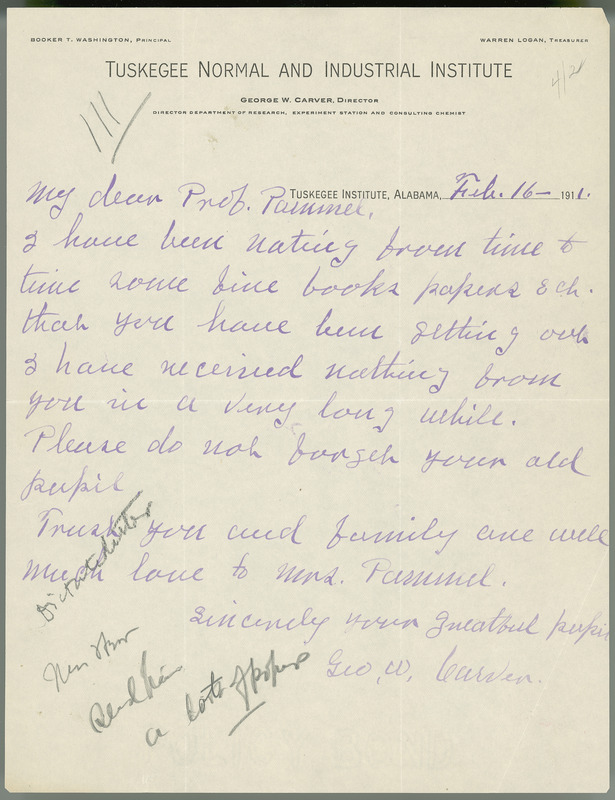 BOOKER T. WASHINGTON, PRINCIPAL
WARREN LOGAN, TREASURER
TUSKEGEE NORMAL AND INDUSTRIAL INSTITUTE
GEORGE W. CARVER, DIRECTOR
DIRECTOR DEPARTMENT OF RESEARCH, EXPERIMENT STATION AND CONSULTING CHEMIST
111
TUSKEGEE INSTITUTE, ALABAMA, Feb. 16- 1911.
My dear Prof. Pammel,
I have been noting from time to
time some fine books papers &ch.
that you have been getting out
I have received nothing from
you in a very long while.
Please do not forget your old
pupil
Trust you and family are well
Much love to Mrs. Pammel.
Sincerely your greatful pupil
Geo. W. Carver.
Dictated letter
Send him
a lot of papers